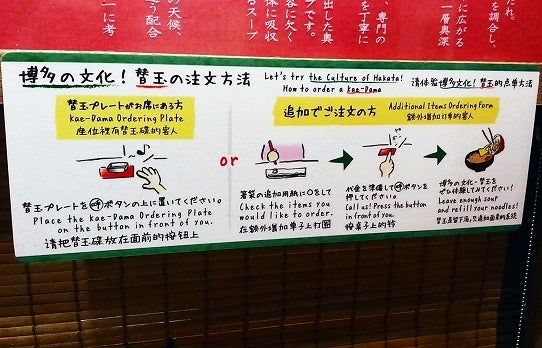 の天候、
違う配合
一に考
出した奥
プです。
容に欠く
体に吸収
るスープ
専門の
を丁寧に
だれ。
を調合し、
に広がる
一層奥深
博多の文化!替玉の注文方法
Let's try the Culture of Hakata!
How to order a kae-Dama
请体验博多文化!替玉的点单方法
替玉プレートがお席にある方
Kae-Dama Ordering Plate
座位裡有替玉碟的客人
替玉プレートを呼ボタンの上に置いてください。
Place the Kae-Dama Ordering Plate
on the button in front of you.
请把替玉碟放在面前的按钮上
or
追加でご注文の方
Additional Items Ordering Form
额外增加订单的客人
箸袋の追加用紙に○をして
Check the items you
would like to order.
在额外增加单子上打圈
代金を準備して呼ボタンを
押してください。
Call us! Press the button
in front of you.
按桌子上的铃
博多の文化・替玉を
ぜひ体験してみてください!
Leave enough soup
and refill your noodles!